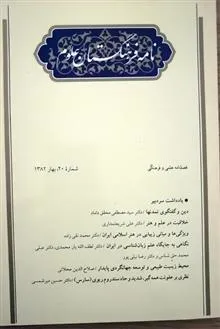 نامه فرهنگستان علوم
فصلنامه علمی و فرهنگی
شمارهٔ ۲۰، بهار ۱۳۸۲
● یادداشت سردبیر
دین و گفتگوی تمدنها / دکتر سید مصطفی محقق داماد
خلاقیت در علم و هنر / دکتر علی شریعتمداری
ویژگی‌ها و مبانی زیبایی در هنر اسلامی ایران / دکتر محمد تقی زاده
نگاهی به جایگاه علم زبان‌شناسی در ایران / دکتر لطف الله یار محمدی، دکتر علی
محمد حق شناس و دکتر رضا نیلی پور
محیط زیست طبیعی و توسعه جهانگردی پایدار / صلاح الدین محلاتی
نظری بر عفونت همه‌گیر، شدید و حاد سندروم ریوی (سارس) / دکتر حسین میرشمسی